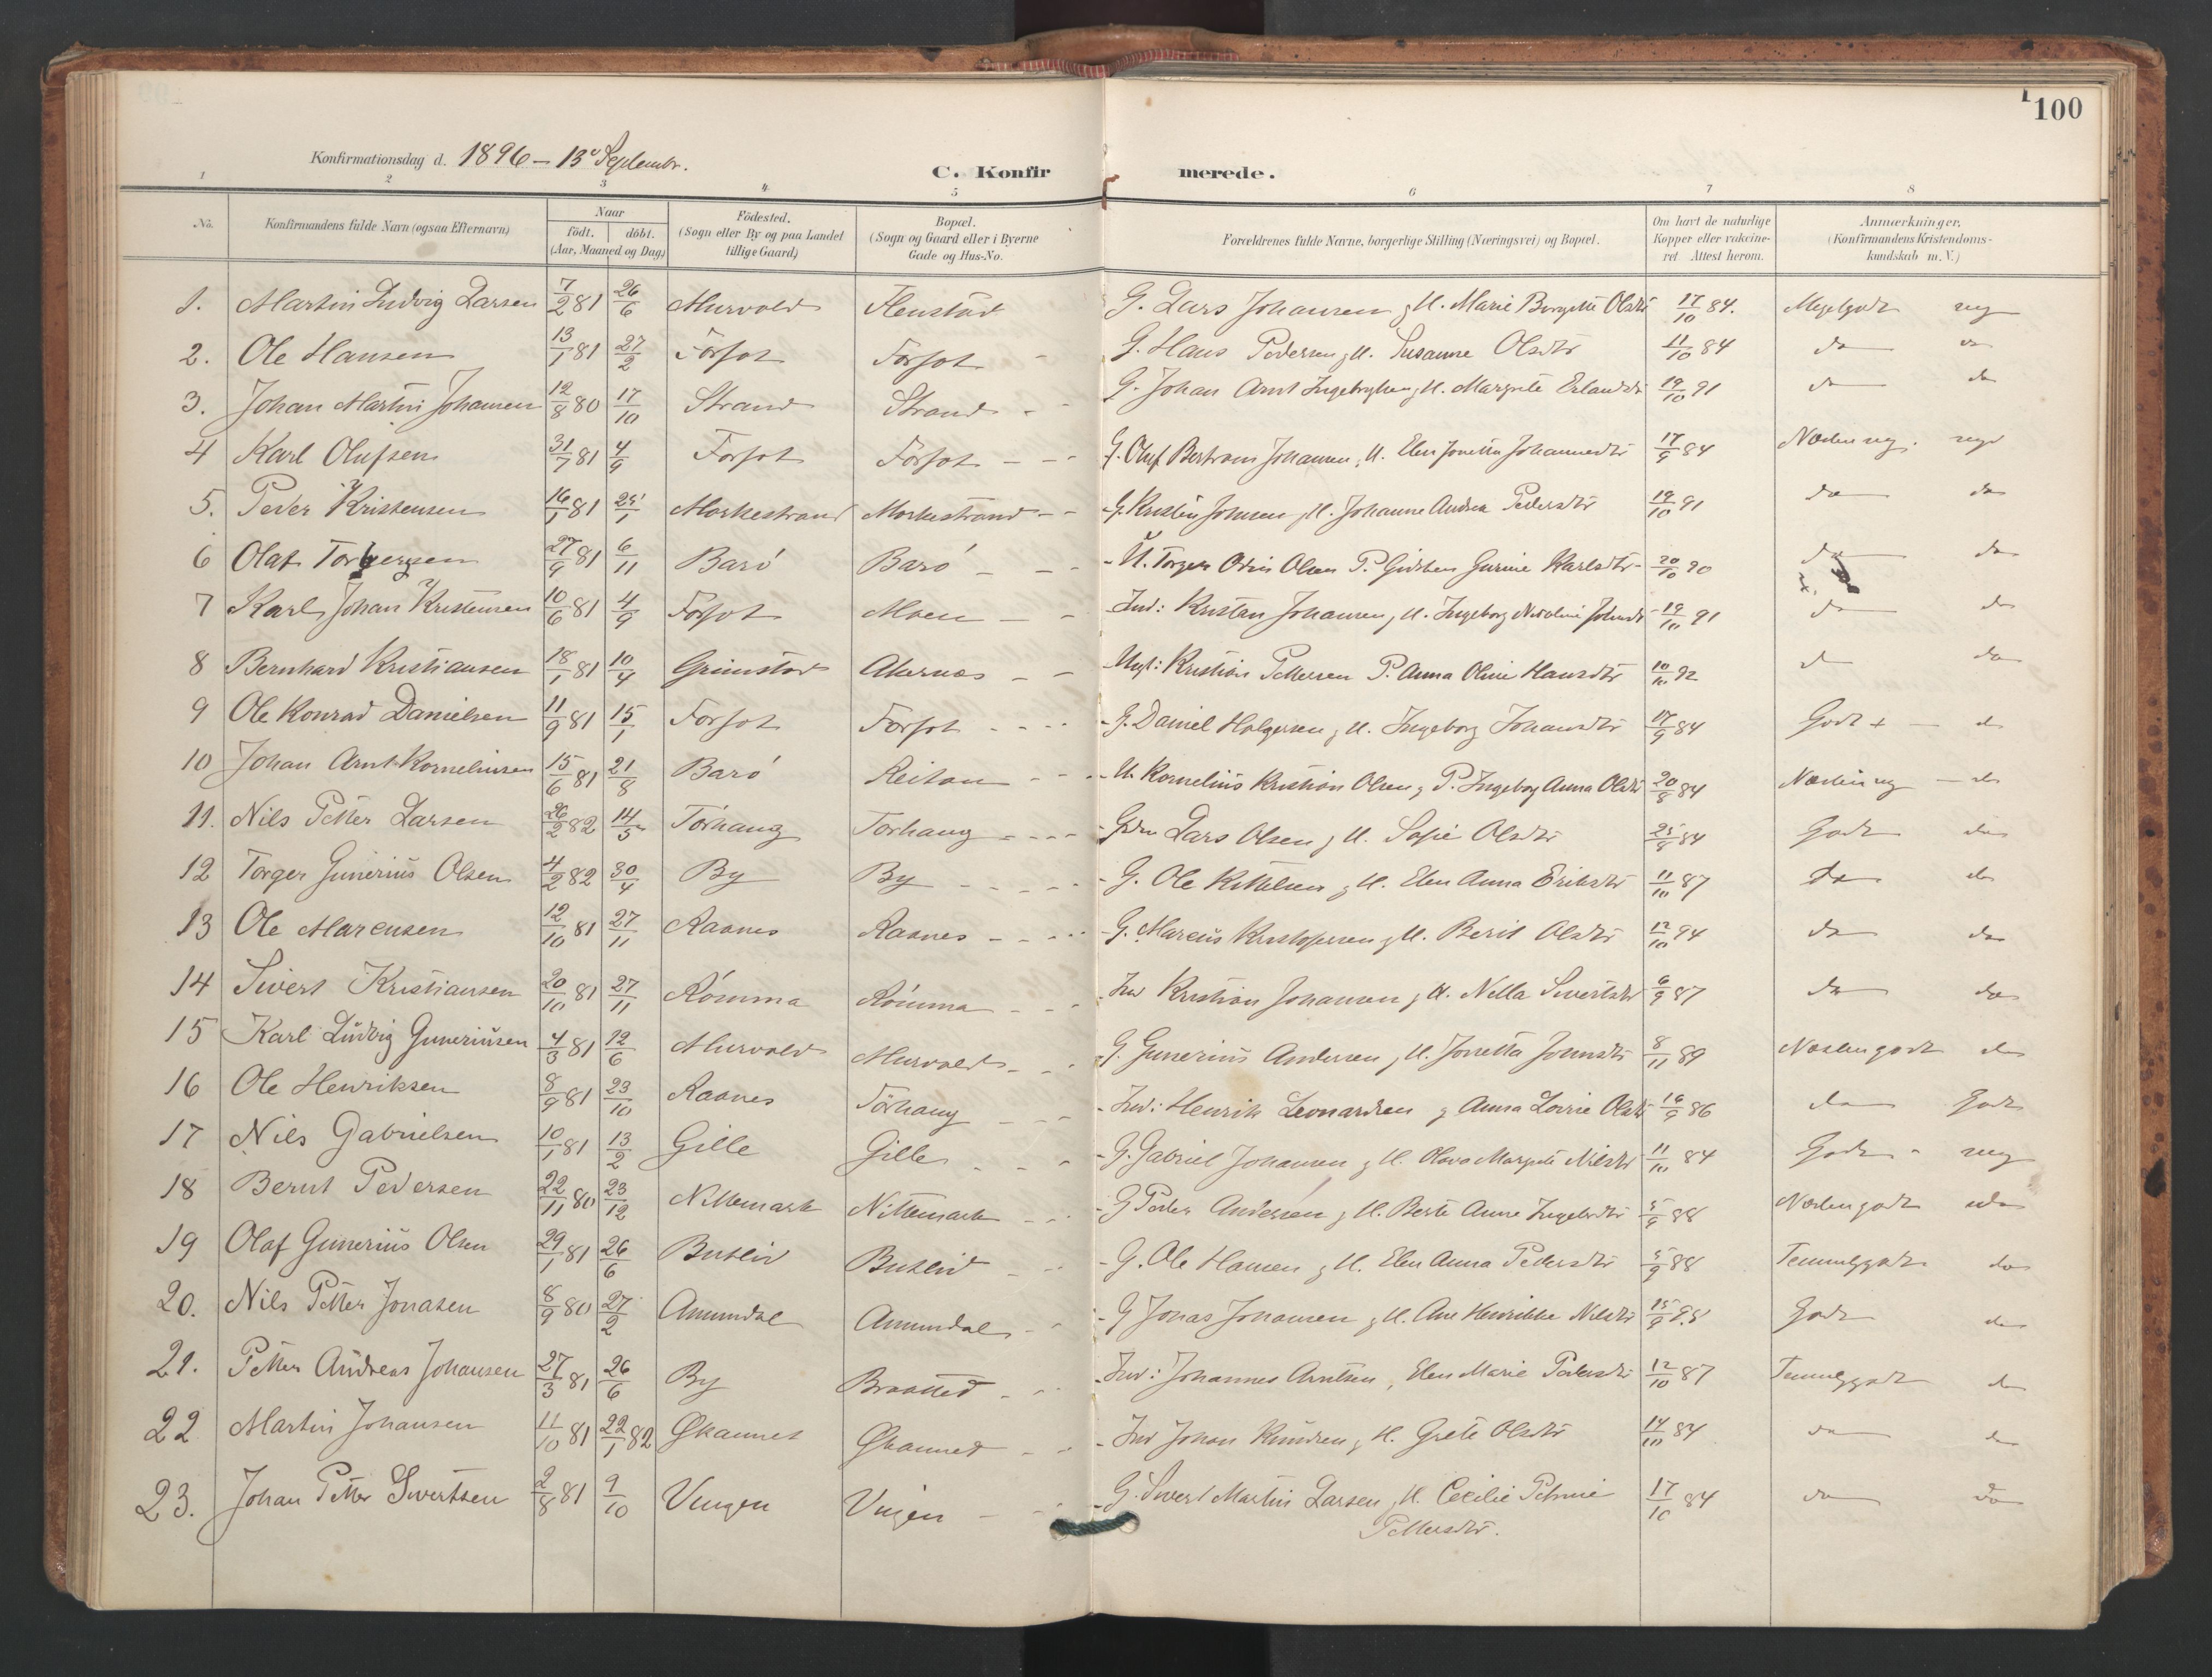 100
Konfirmationsdag d. 1896 – 13de Septembr.
C. Konfirmerede.
1 2 3 4 5 6 7 8
No. | Konfirmandens fulde Navn (ogsaa Efternavn) | Naar födt. döbt. (Aar, Maaned og Dag) | Födested. (Sogn eller By og paa Landet tillige Gaard) | Bopæl. (Sogn og Gaard eller i Byerne Gade og Hus-No. | Forældrenes fulde Navne, borgerlige Stilling (Næringsvei) og Bopæl. | Om havt de naturlige Kopper eller vakcineret. Attest herom. | Anmærkninger. (Konfirmandens Kristendomskundskab m. V.)
1. Martin Ludvig Larsen 7/2 81 26/6 Murvold Flenstad G. Lars Johansen, H. Marie Bergitte Olsdtr 17/10 84. Megetgodt mg
2. Ole Hansen 13/1 81 27/2 Forsot Forsot G. Hans Pedersen, H. Susanne Olsdtr 11/10 84 do do
3. Johan Martin Johansen 12/8 80 17/10 Strand Strand G. Johan Arnt Ingebrigtsen, H. Margrete Erlandsdtr 19/10 91 do do
4 Karl Olufsen 31/7 81 4/9 Forsot Forsot G. Oluf Bertram Johansen, H. Elen Jonetta Johannesdtr 17/9 84 Næsten mg. mgd
5. Peder Kristensen 16/1 81 25/1 Morkestrand Morkestrand G. Kristen Johnsen, H. Johanne Andrea Pedersdtr 19/10 91 do do
6 Olaf Torgersen 27/9 81 6/11 Barö Barö U. Torger Odin Olsen P. Gidsken Gurine Karlsdtr 20/10 90 do do
7 Karl Johan Kristensen 10/6 81 4/9 Forsot Moen Ind: Kristen Johansen, H. Ingeborg Nikoline Johnsdtr 19/10 91 do do
8 Bernhard Kristiansen 18/1 81 10/4 Grimstad Akernes Ungk: Kristian Pettersen P. Anna Oline Hansdtr 10/10 92 do do
9 Ole Konrad Danielsen 11/9 81 15/1 Forsot Forsot G. Daniel Holgersen, H. Ingeborg Johansdtr 17/9 84 Godt + do
10 Johan Arnt Kornelinsen 15/6 81 21/8 Barö Reitan U. Kornelius Kristian Olsen, P. Ingeborg Anna Olsdtr 20/8 84 Næsten mg do
11. Nils Petter Larsen 26/2 82 14/5 Torhaug Torhaug Lars Olsen, H. Sofie Olsdtr 25/8 84 Godt do
12 Torger Gunerius Olsen 4/2 82 30/4 By By G. Ole Kittelsen, H. Elen Anna Eriksdtr 11/10 87 do do
13 Ole Marcusen 12/10 81 27/11 Raanes Raanes G. Marcus Kristofersen, H. Berit Olsdtr 12/10 94 do do
14 Sivert Kristiansen 20/10 81 27/11 Römma Römma Ind Kristian Johansen, H. Nella Sivertsdtr 6/9 87 do do
15 Karl Ludvig Guneriusen 4/3 81 12/6 Murvold Murvold G. Gunerius Andersen, H. Jonetta Johnsdtr 8/11 89 Næstengodt do
16 Ole Henriksen 8/9 81 23/10 Raanes Torhaug Ind: Henrik Leonardsen, Anna Lovise Olsdtr 16/9 86 do Godt
17 Nils Gabrielsen 10/1 81 13/2 Gille Gille G. Gabriel Johansen, H. Olava Margrete Nilsdtr 11/10 84 Godt mg
18 Bernt Pedersen 22/11 80 23/12 Nittemark Nittemark G Peder Andersen, H. Berte Anne Ingebr.dtr 5/9 88 Næstengodt do
19 Olaf Gunerius Olsen 29/1 81 26/6 Buslid Buslid G. Ole Hansen, H. Elen Anna Pedersdtr 5/9 88 Temmeligodt do
20. Nils Petter Jonasen 8/9 80 27/2 Amundal Amundal G Jonas Johansen, H. Ane Henrikke Nilsdtr 15/9 95 Godt do
21. Petter Andreas Johansen 27/3 81 26/6 By Braatted Ind: Johannes Arntsen, Elen Marie Pedersdtr 12/10 87 Temmeligodt do
22. Martin Johansen 11/10 81 22/1 82 Økannet Økannet Ind Johan Knudsen, H. Grete Olsdtr 14/10 84 do do
23. Johan Petter Sivertsen 2/8 81 9/10 Vingen Vingen G. Sivert Martin Larsen, H. Cecilie Petrine 17/10 84 do do
Pettersdtr.